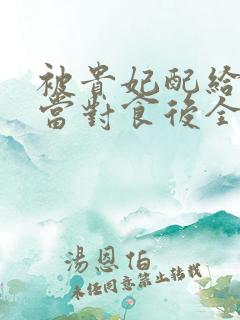 被貴妃配給
當對食後全
湯恩伯
未經同意禁止轉載